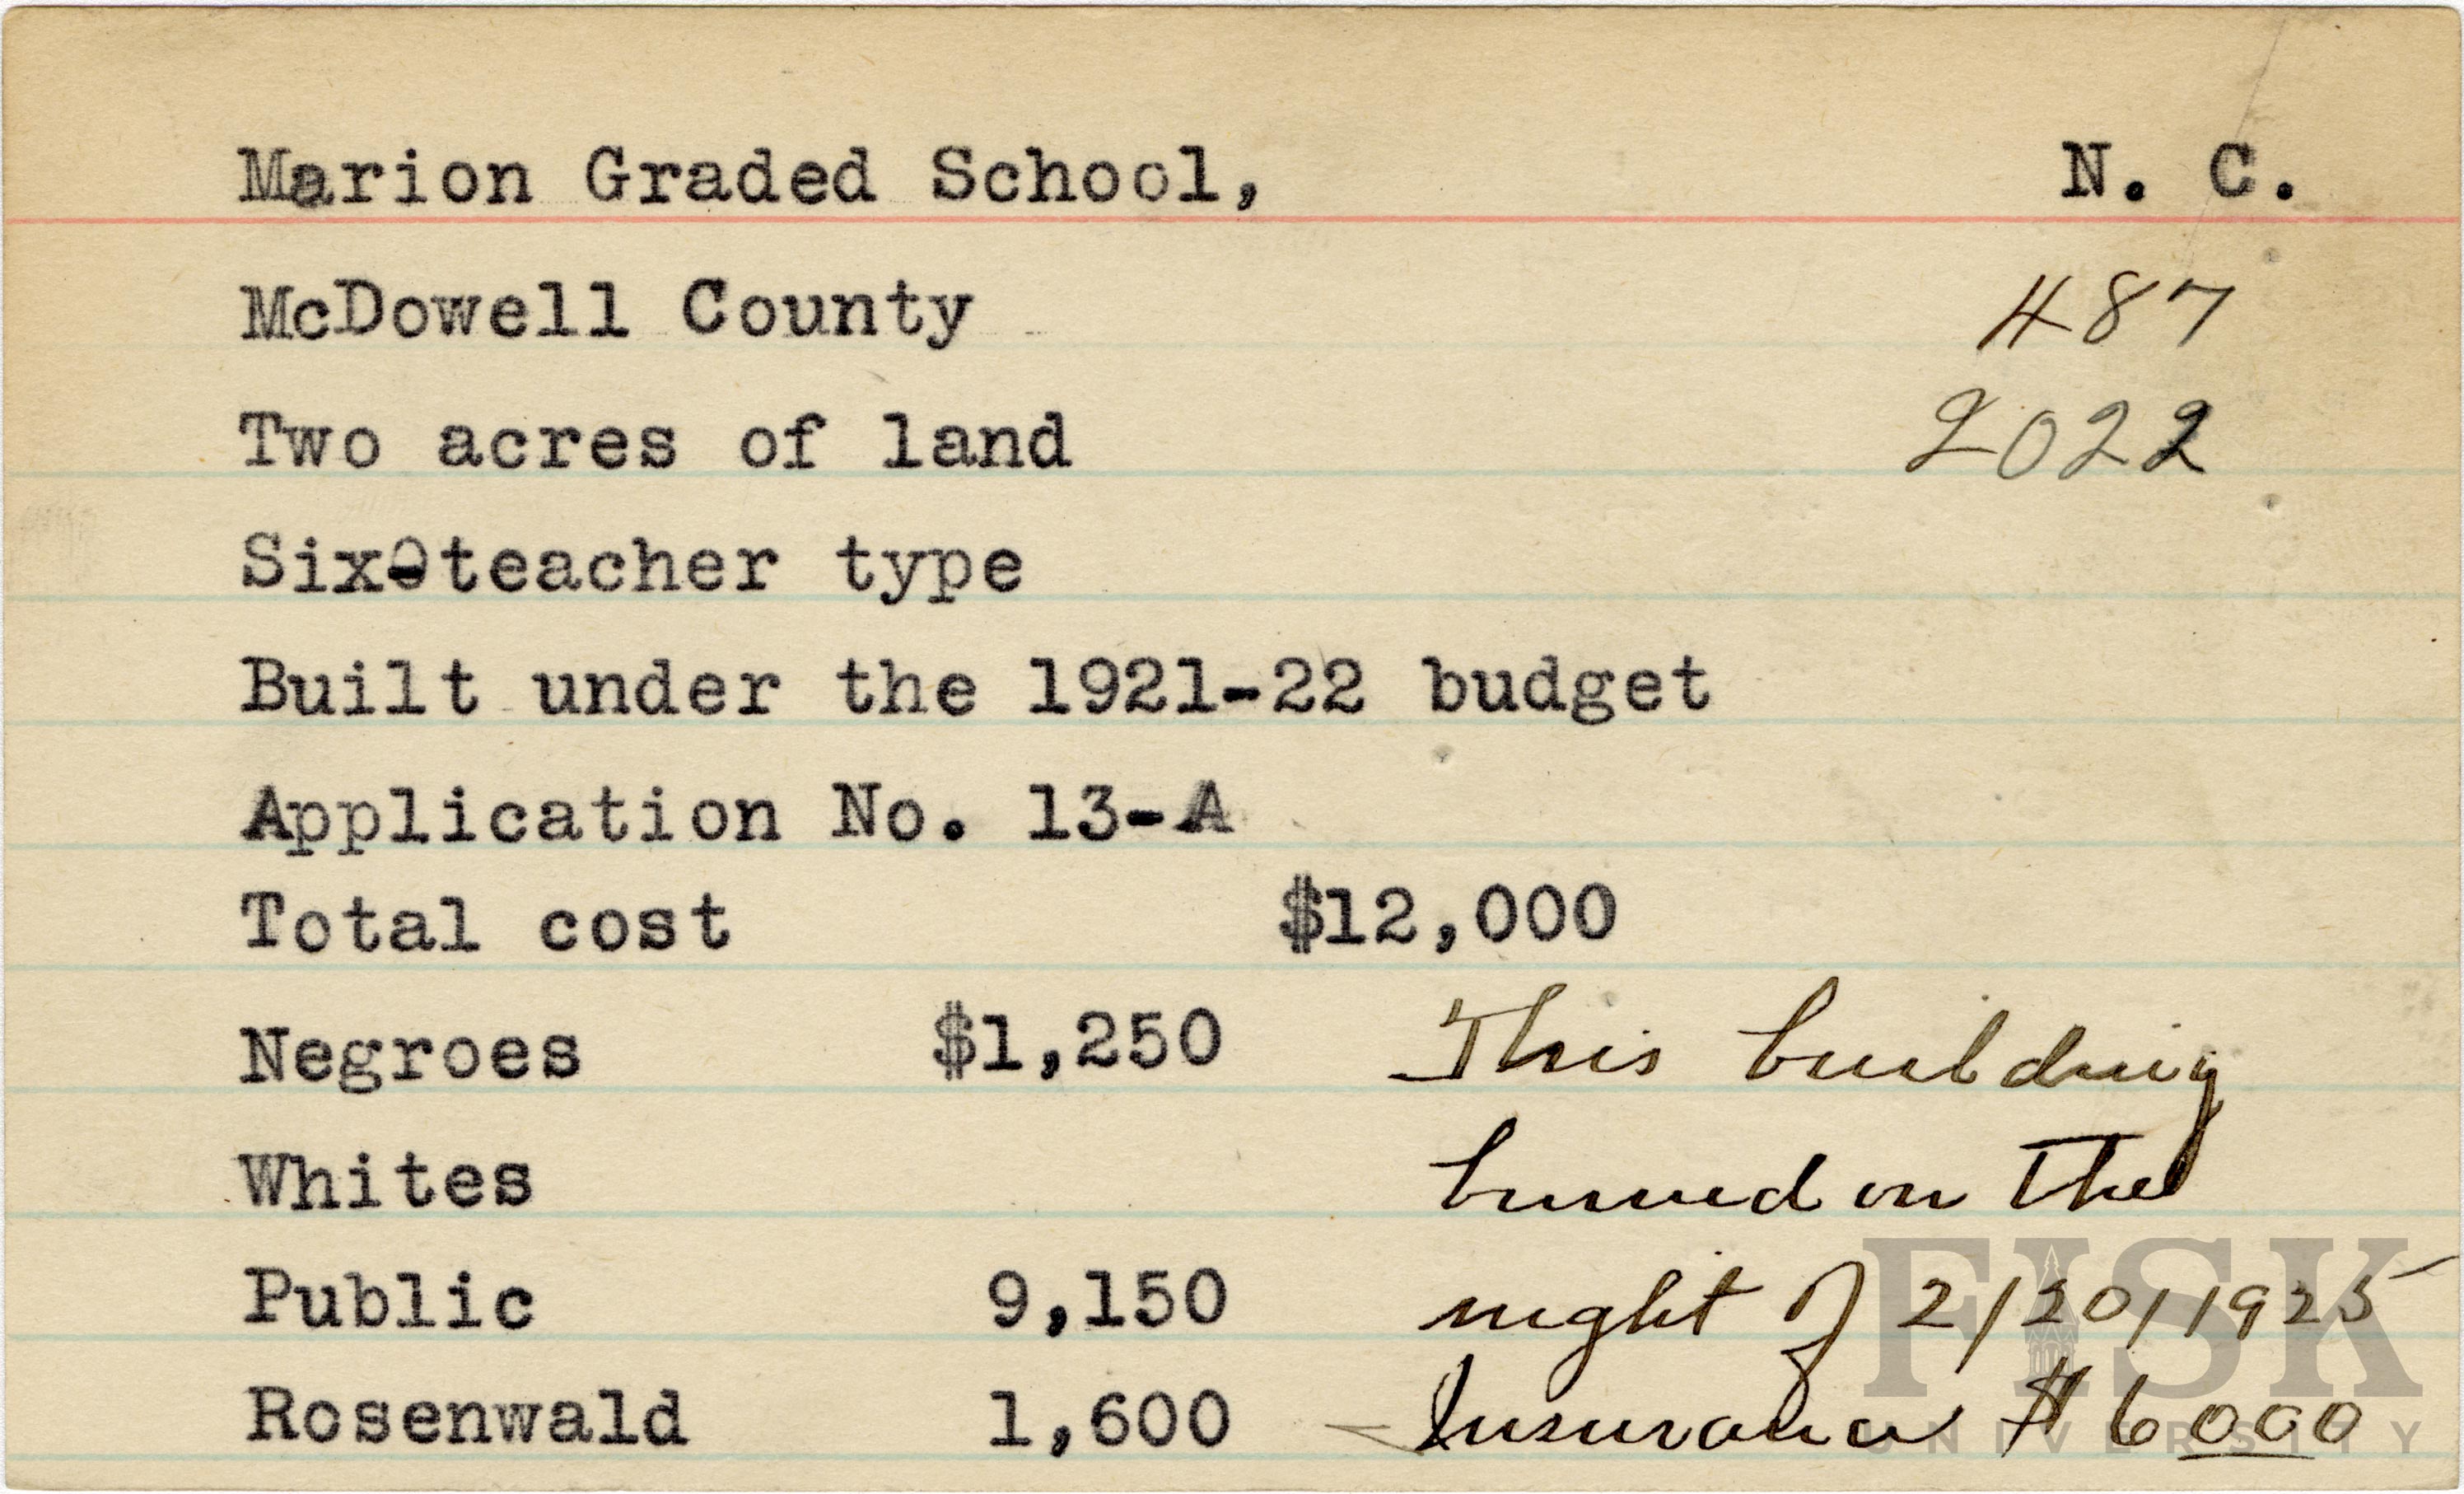 Marion Graded School, N. C.
McDowell County 487
Two acres of land 2022
Six-teacher type
Built under the 1921-22 budget
Application No. 13-A
Total cost $12,000
Negroes $1,250 This building
Whites burned on the
Public 9,150 night of 2/20/1925
Rosenwald 1,600 Insurance $6000
FISK
UNIVERSITY